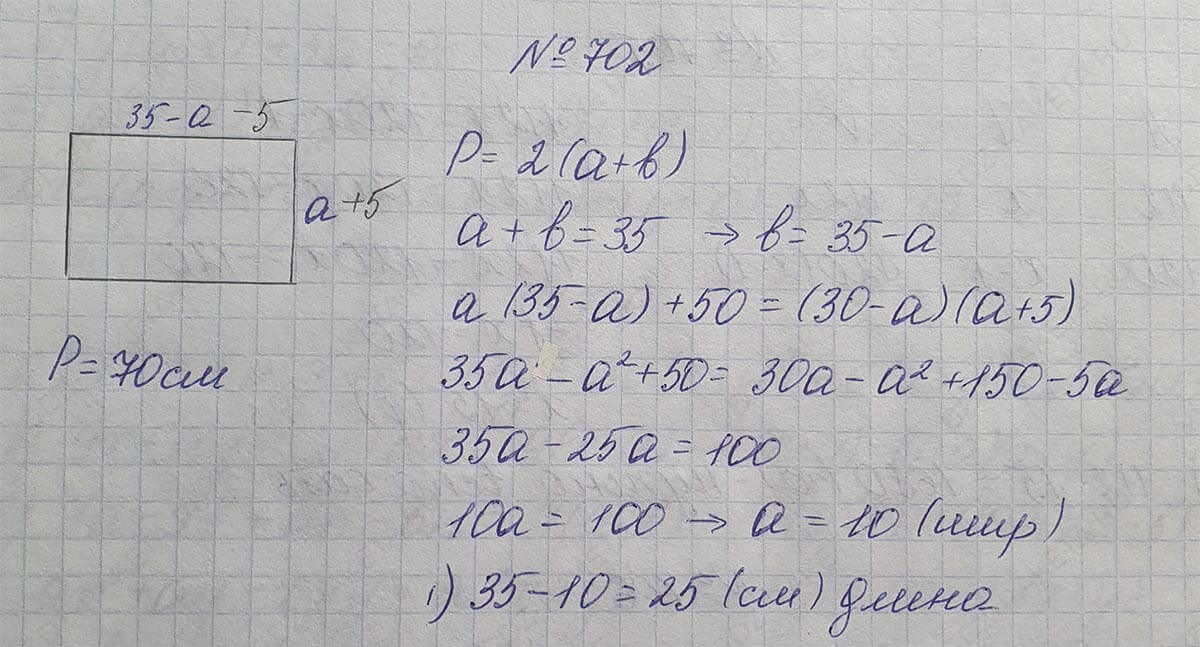 №702
35-а -5
а +5
P= 70см
P= 2(а+в)
а + в = 35 → в = 35-а
а (35-а) +50 = (30-а)(а+5)
35а - а² +50 = 30а - а² +150-5а
35а - 25а = 100
10а = 100 → а = 10 (шир)
1) 35-10 = 25 (см) длина